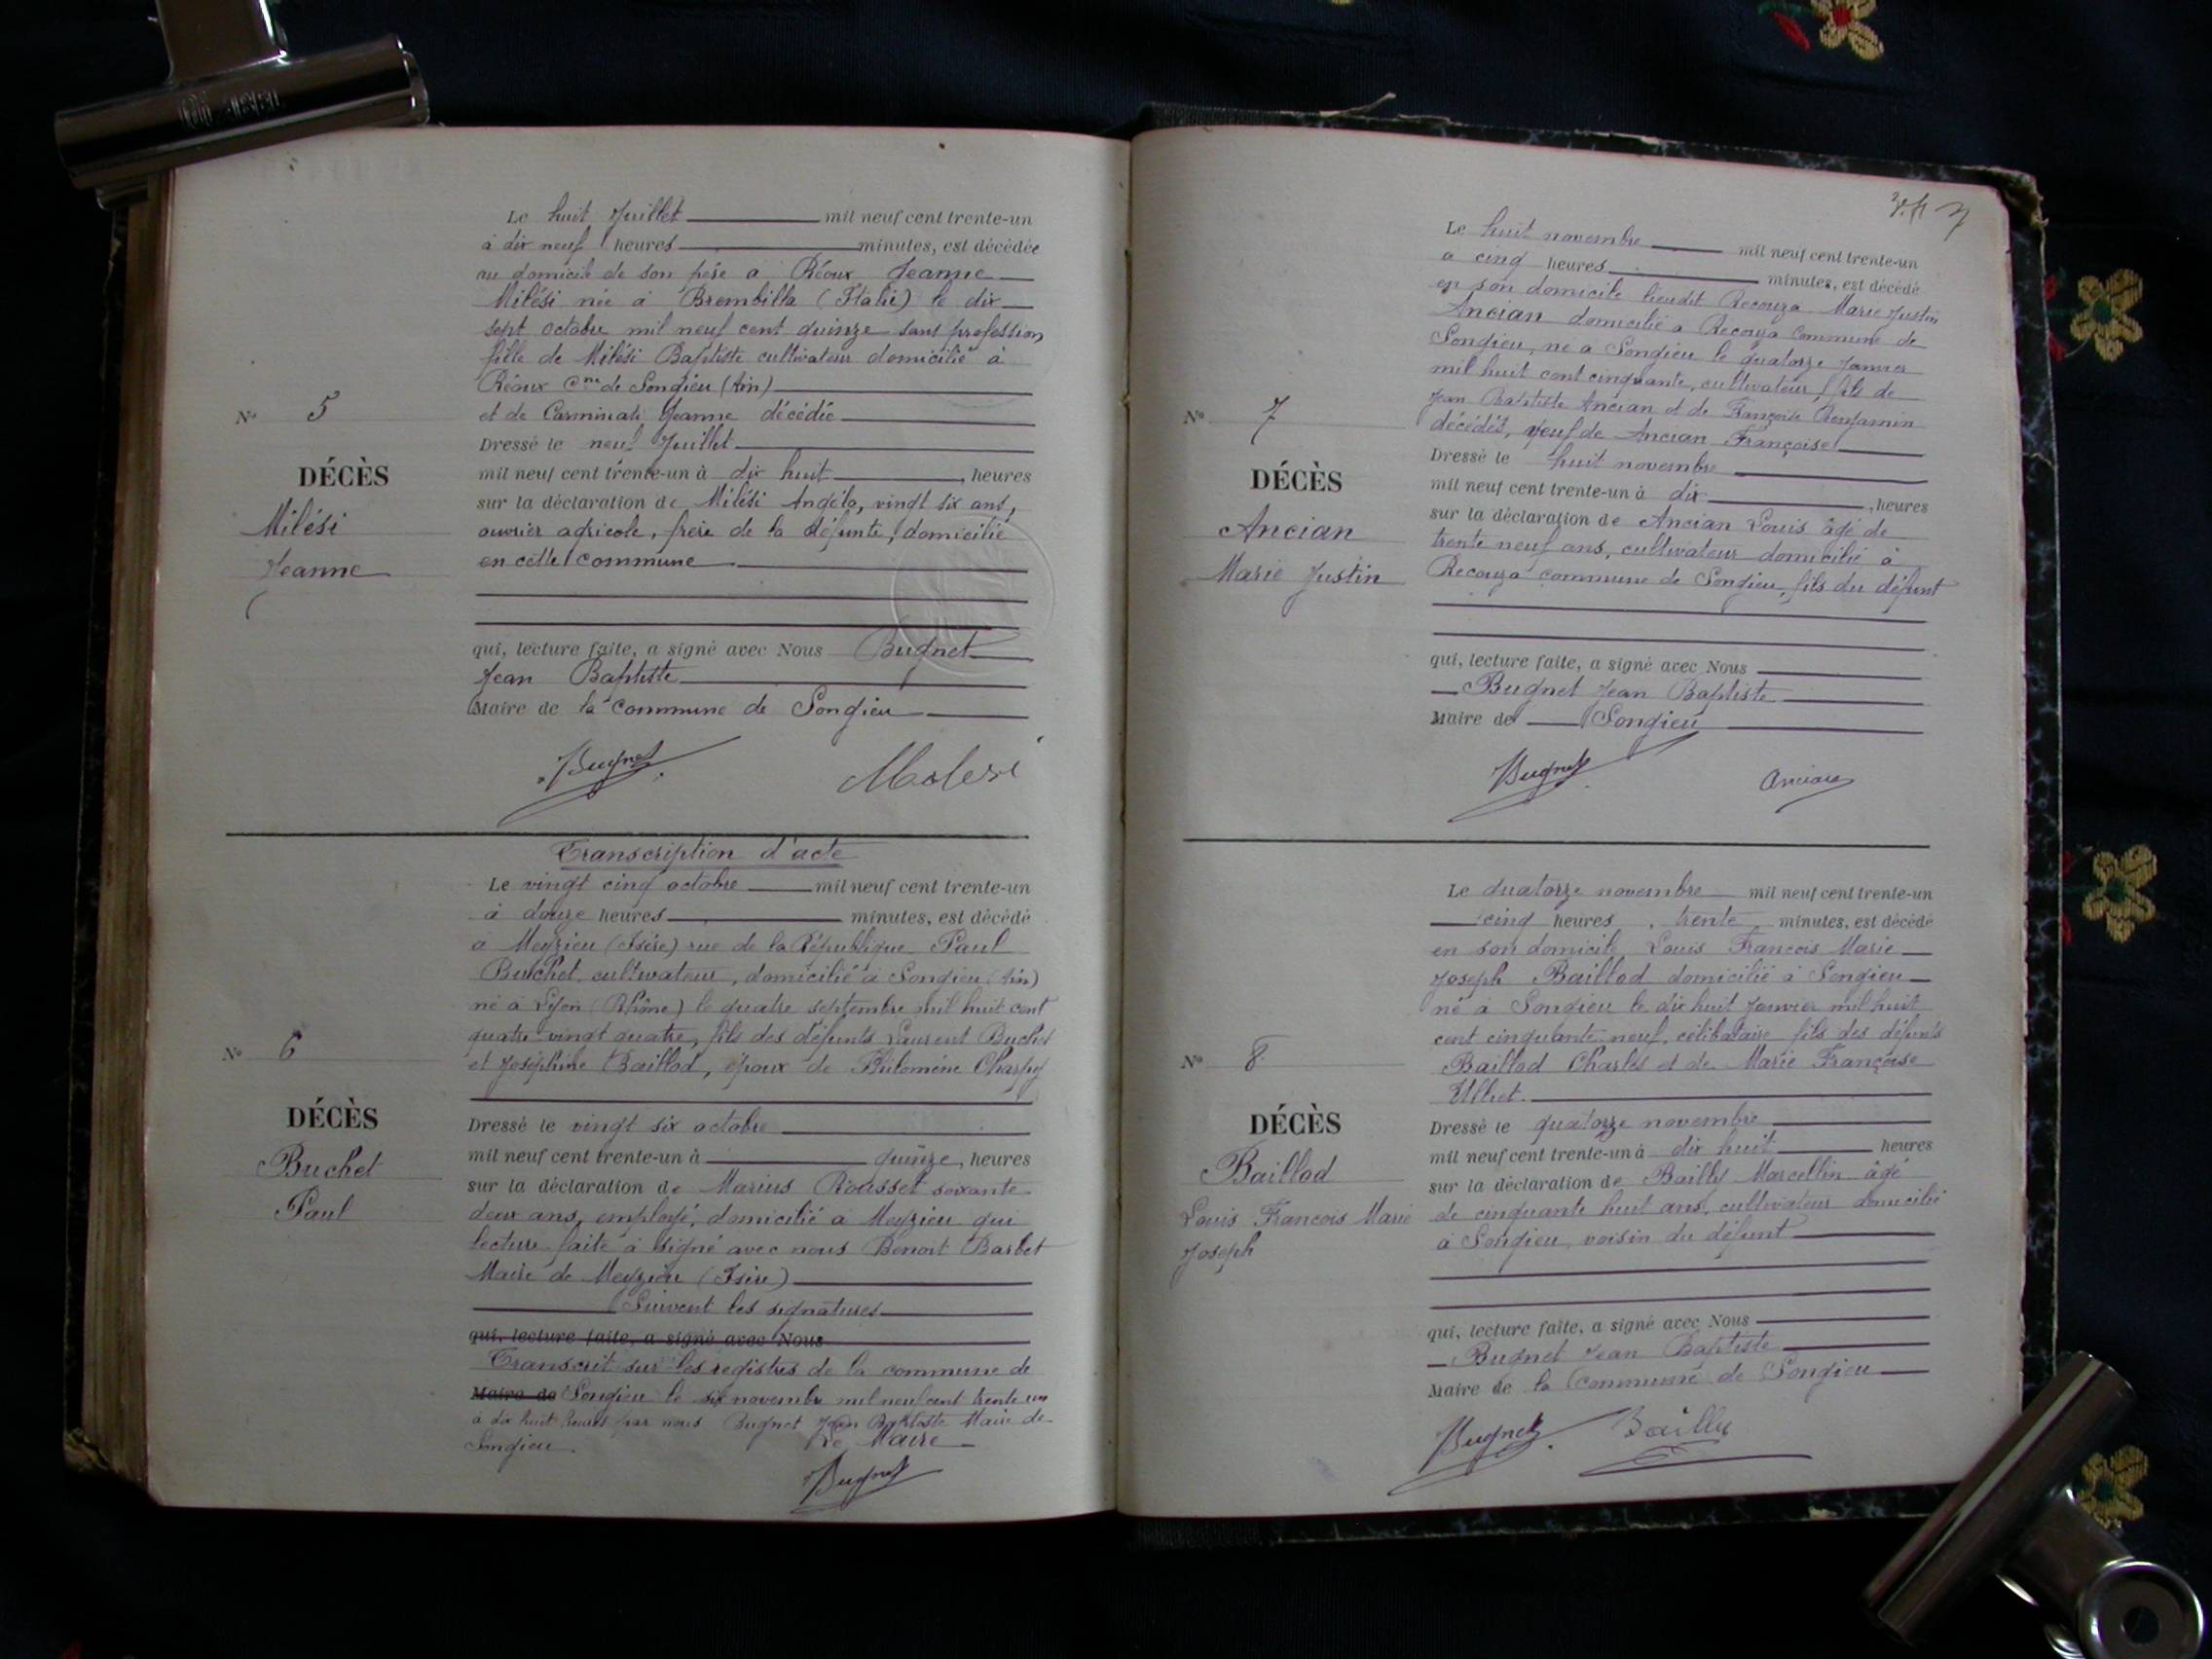 Le huit Juillet mil neuf cent trente-un
à dix neuf heures minutes, est décédée
au domicile de son père a Réoux Jeanne
Milési née à Brembilla (Italie) le dix
sept octobre mil neuf cent quinze sans profession
fille de Milési Baptiste cultivateur domicilié à
Réoux Cne de Songieu (Ain)
N° 5
et de Carminati Jeanne décédée
Dressé le neuf Juillet
DÉCÈS
Milési
Jeanne
mil neuf cent trente-un à dix huit, heures
sur la déclaration de Milési Angelo, vingt six ans,
ouvrier agricole, frère de la défunte, domicilié
en cette commune
qui, lecture faite, a signé avec Nous Bugnet
Jean Baptiste
Maire de la Commune de Songieu
Bugnet
Transcription d'acte
Le vingt cinq octobre mil neuf cent trente-un
à douze heures minutes, est décédé
a Meyzieu (Isère) rue de la République Paul
Buchet cultivateur, domicilié à Songieu (Ain)
né à Lyon (Rhône) le quatre septembre mil huit cent
quatre vingt quatre, fils des défunts Laurent Buchet
N° 6
et Joséphine Baillod, époux de Philomène Charpy
DÉCÈS
Buchet
Paul
Dressé le vingt six octobre
mil neuf cent trente-un à quinze, heures
sur la déclaration de Marius Rousset soixante
deux ans, employé, domicilié a Meyzieu qui
lecture faite à signé avec nous Benoit Barbet
Maire de Meyzieu (Isère)
Suivent les signatures
qui, lecture faite, a signé avec Nous
Transcrit sur les registres de la commune de
Maire de Songieu le six novembre mil neuf cent trente un
à dix huit heures par nous Bugnet Jean Baptiste Maire de
Songieu.
Le Maire
Bugnet
Le huit novembre mil neuf cent trente-un
a cinq heures minutes, est décédé
en son domicile lieudit Recouza Marie Justin
Ancian domicilié a Recouza Commune de
Songieu, né a Songieu le quatorze Janvier
mil huit cent cinquante, cultivateur, fils de
Jean Baptiste Ancian et de Françoise Benjamin
N° 7
décédés, veuf de Ancian Françoise
DÉCÈS
Ancian
Marie Justin
Dressé le huit novembre
mil neuf cent trente-un à dix, heures
sur la déclaration de Ancian Louis âgé de
trente neuf ans, cultivateur domicilié à
Recouza commune de Songieu, fils du défunt
qui, lecture faite, a signé avec Nous
Bugnet Jean Baptiste
Maire de Songieu
Bugnet Ancian
Le quatorze novembre mil neuf cent trente-un
cinq heures, trente minutes, est décédé
en son domicile Louis François Marie
Joseph Baillod domicilié à Songieu
né à Songieu le dix huit Janvier mil huit
cent cinquante neuf, célibataire fils des défunts
N° 8
Baillod Charles et de Marie Françoise
DÉCÈS
Baillod
Louis François Marie
Joseph
Dressé le quatorze novembre
mil neuf cent trente-un à dix huit heures
sur la déclaration de Bailly Marcellin âgé
de cinquante huit ans, cultivateur domicilié
à Songieu, voisin du défunt
qui, lecture faite, a signé avec Nous
Bugnet Jean Baptiste
Maire de la Commune de Songieu
Bugnet Bailly